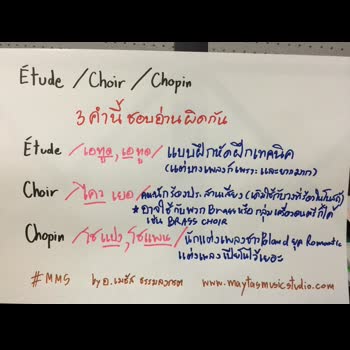 Étude / Choir / Chopin
3 คำนี้ ชอบอ่านผิดกัน
Étude /เอทูด, เอทูด/ แบบฝึกหัดฝึกเทคนิค
(แต่บางเพลงก็เพราะ และยากมาก)
Choir /ไคว เยอ/ คนนักร้องประสานเสียง (เดิมใช้กับวงที่ร้องในโบสถ์)
* อาจใช้กับพวก Brass หรือ กลุ่มเครื่องดนตรีก็ได้
เช่น BRASS CHOIR
Chopin /โชแปง, โชแพน/ นักแต่งเพลงชาวPoland ยุค Romantic
แต่งเพลงเปียโนไว้เยอะ
#MMS by อ.เมธัส ธรรมลงกรต www.maytasmusicstudio.com